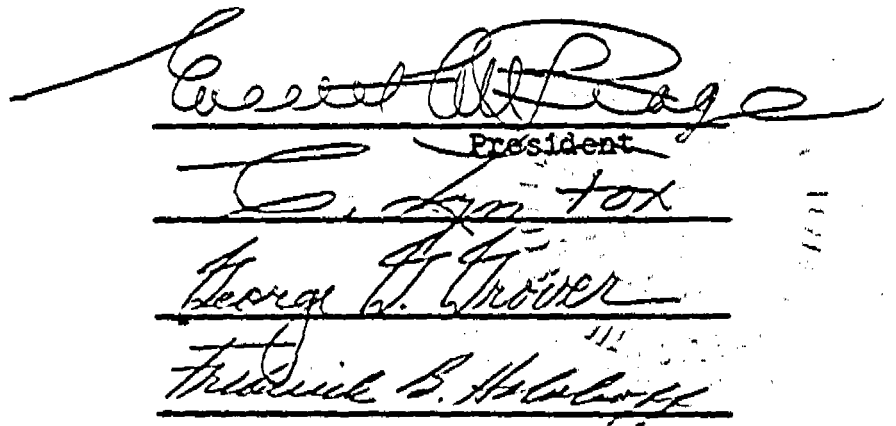 Everett C. McKeage
President
C. Lyn Fox
George G. Grover
Frederick B. Holoboff